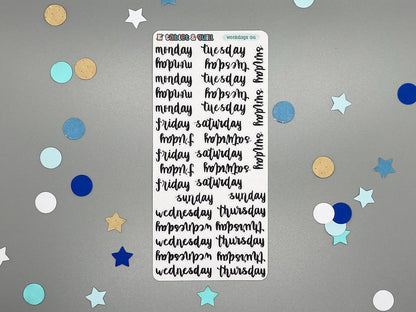 weekdays 06
monday tuesday
monday tuesday
monday tuesday
monday tuesday
monday tuesday
sunday
sunday
sunday
friday saturday
friday saturday
friday saturday
friday saturday
friday saturday
sunday sunday
wednesday thursday
wednesday thursday
wednesday thursday
wednesday thursday
wednesday thursday